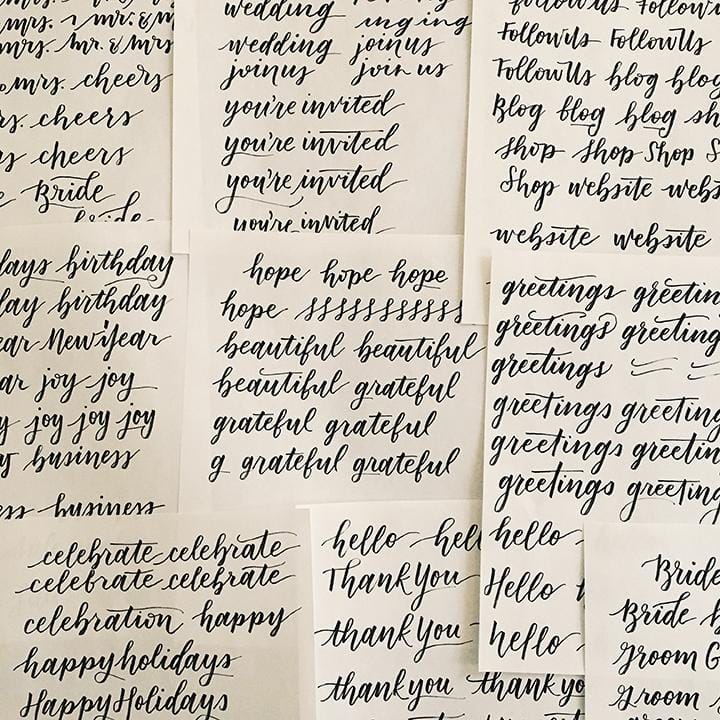 mrs. mr. & m
mrs. mr. & mrs
mrs. cheers
rs. cheers
cheers
Bride
bride
wedding
wedding joinus
joinus join us
you're invited
you're invited
you're invited
you're invited
followus Follow
Followus FollowUs
FollowUs blog blog
Blog blog blog sh
shop shop Shop S
Shop website webs
website website
days birthday
day birthday
ear NewYear
ar joy joy
y joy joy joy
business
ess business
hope hope hope
hope
beautiful beautiful
beautiful grateful
grateful grateful
g grateful grateful
greetings greetin
greetings greeting
greetings
greetings greeting
greetings greetin
greetings greeting
hello
Hello
hello
celebrate celebrate
celebrate celebrate
celebration happy
happyholidays
HappyHolidays
hello hell
ThankYou
thankyou
thankyou thankyo
Bride
Bride b
Groom G
groom